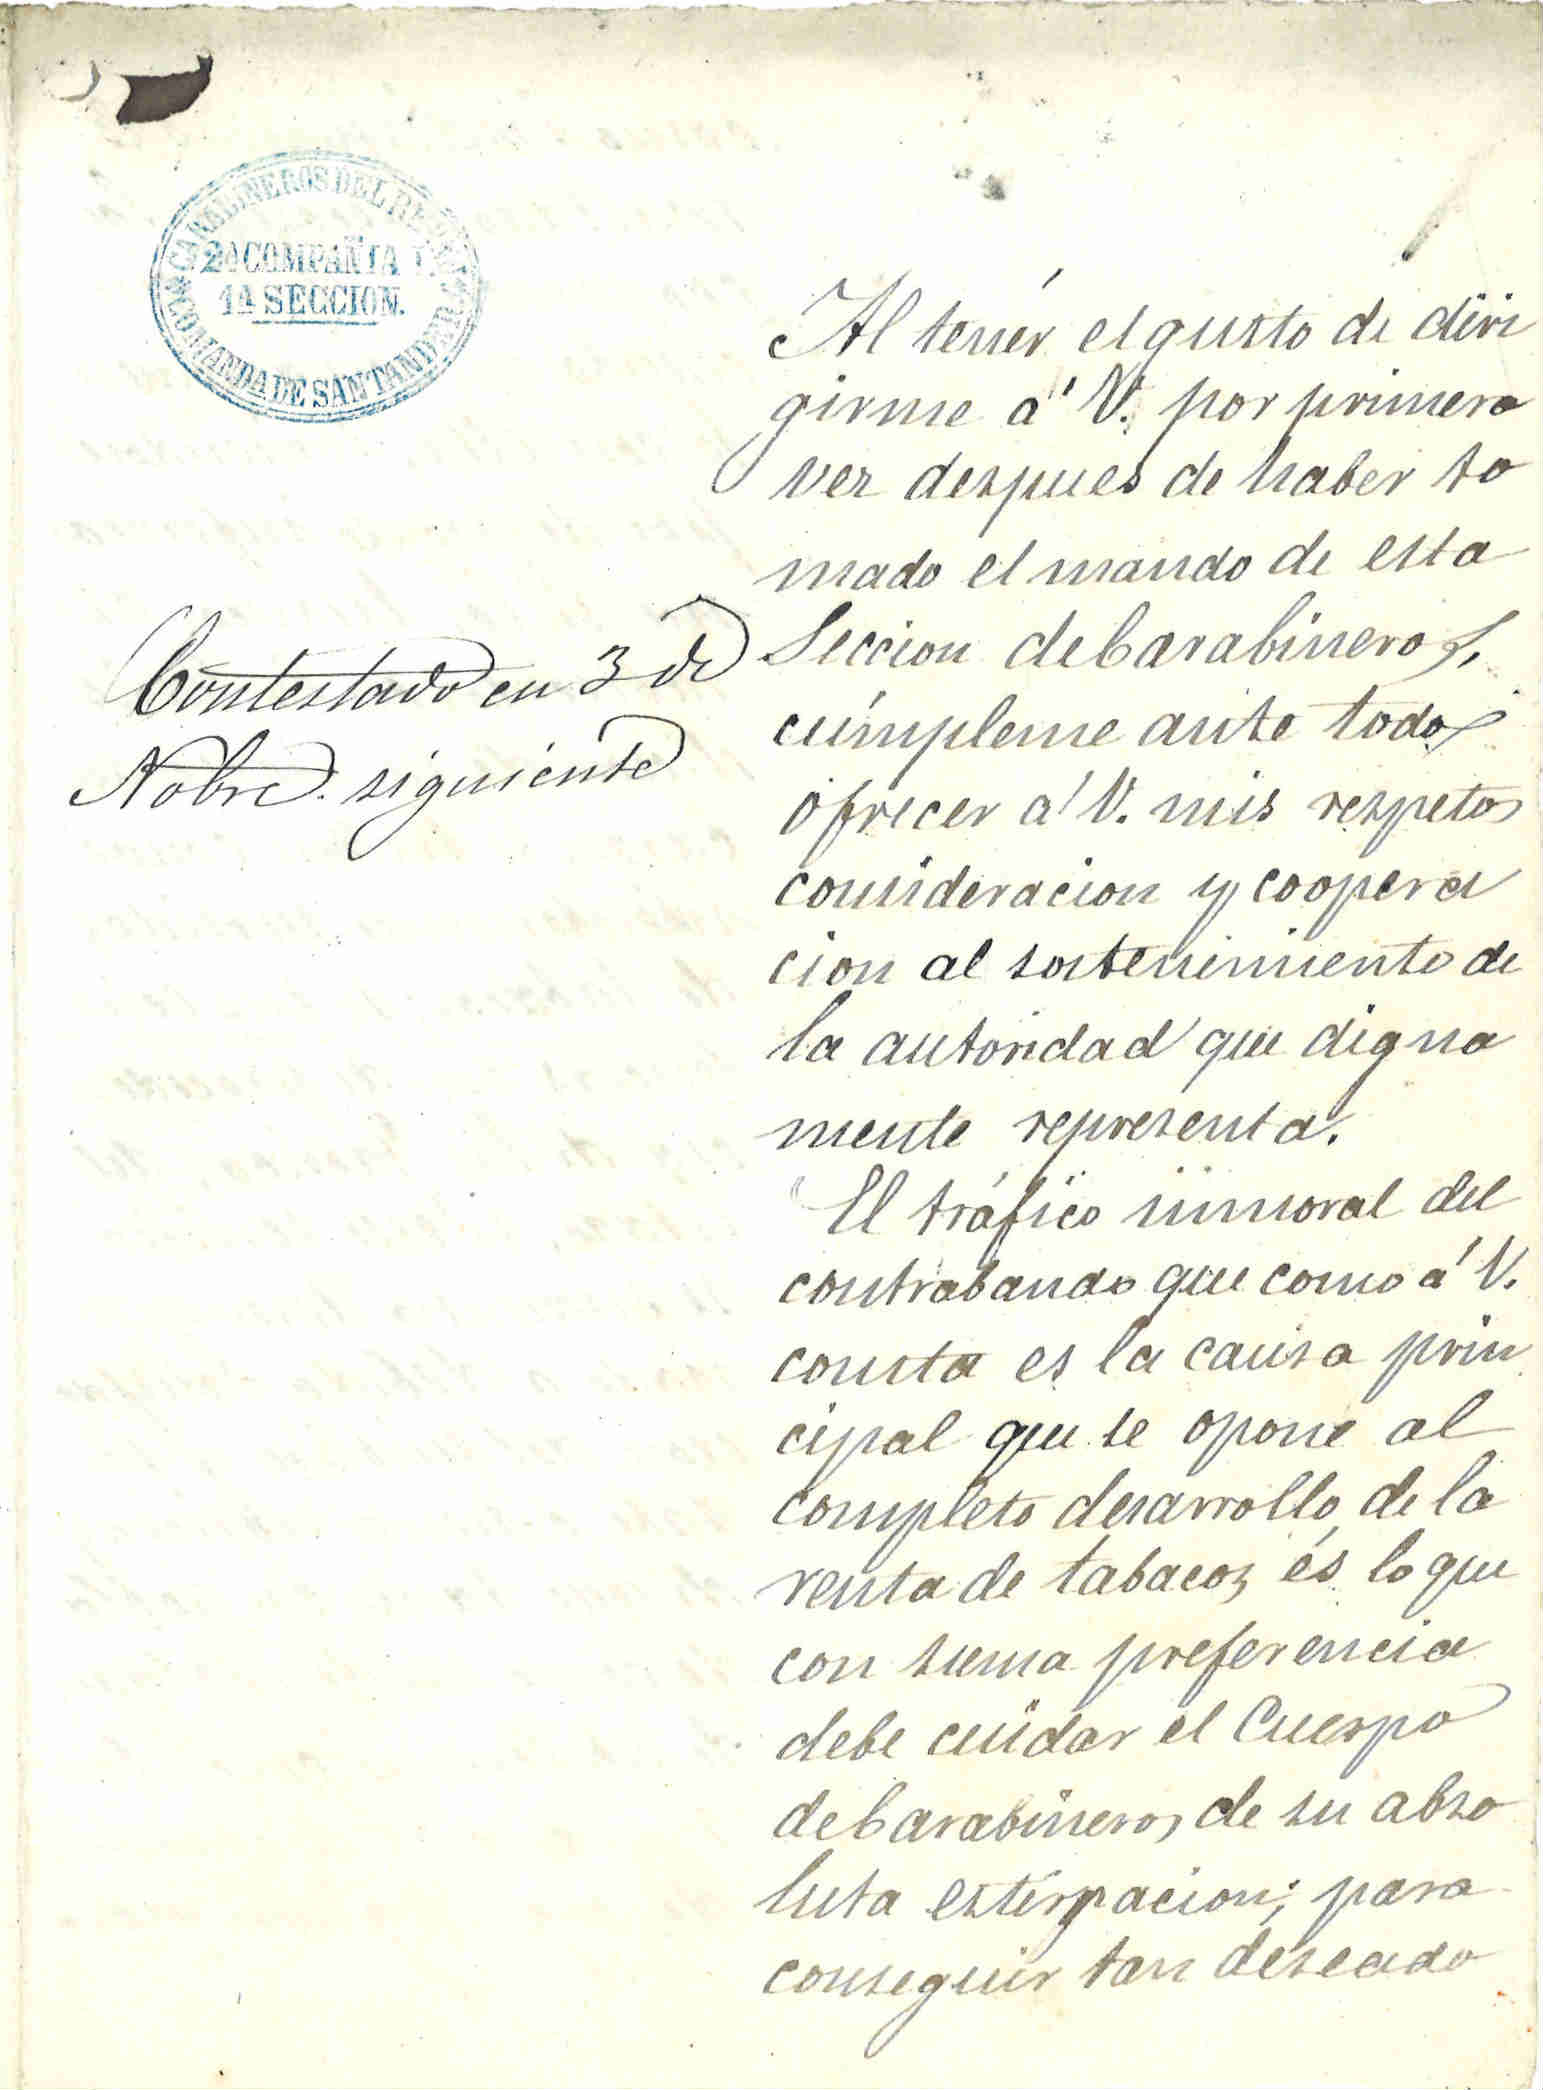 CARABINEROS DEL REINO
2ª COMPAÑIA
1ª SECCION.
COMANDA DE SANTANDER
Contestado en 3 de
Nobre. siguiente
Al tenér el gusto de diri
girme á V. por primera
vez despues de haber to
mado el mando de esta
Seccion de Carabineros,
cúmpleme ante todo
ofrecer á V. mis respetos
consideracion y coopera
cion al sostenimiento de
la autoridad que digna
mente representa.
El tráfico inmoral del
contrabando que como á V.
consta es la causa prin
cipal que se opone al
completo desarrollo de la
renta de tabacos, és lo que
con suma preferencia
debe cuidar el Cuerpo
de Carabineros, de su abso
luta estirpacion; para
conseguir tan deseado